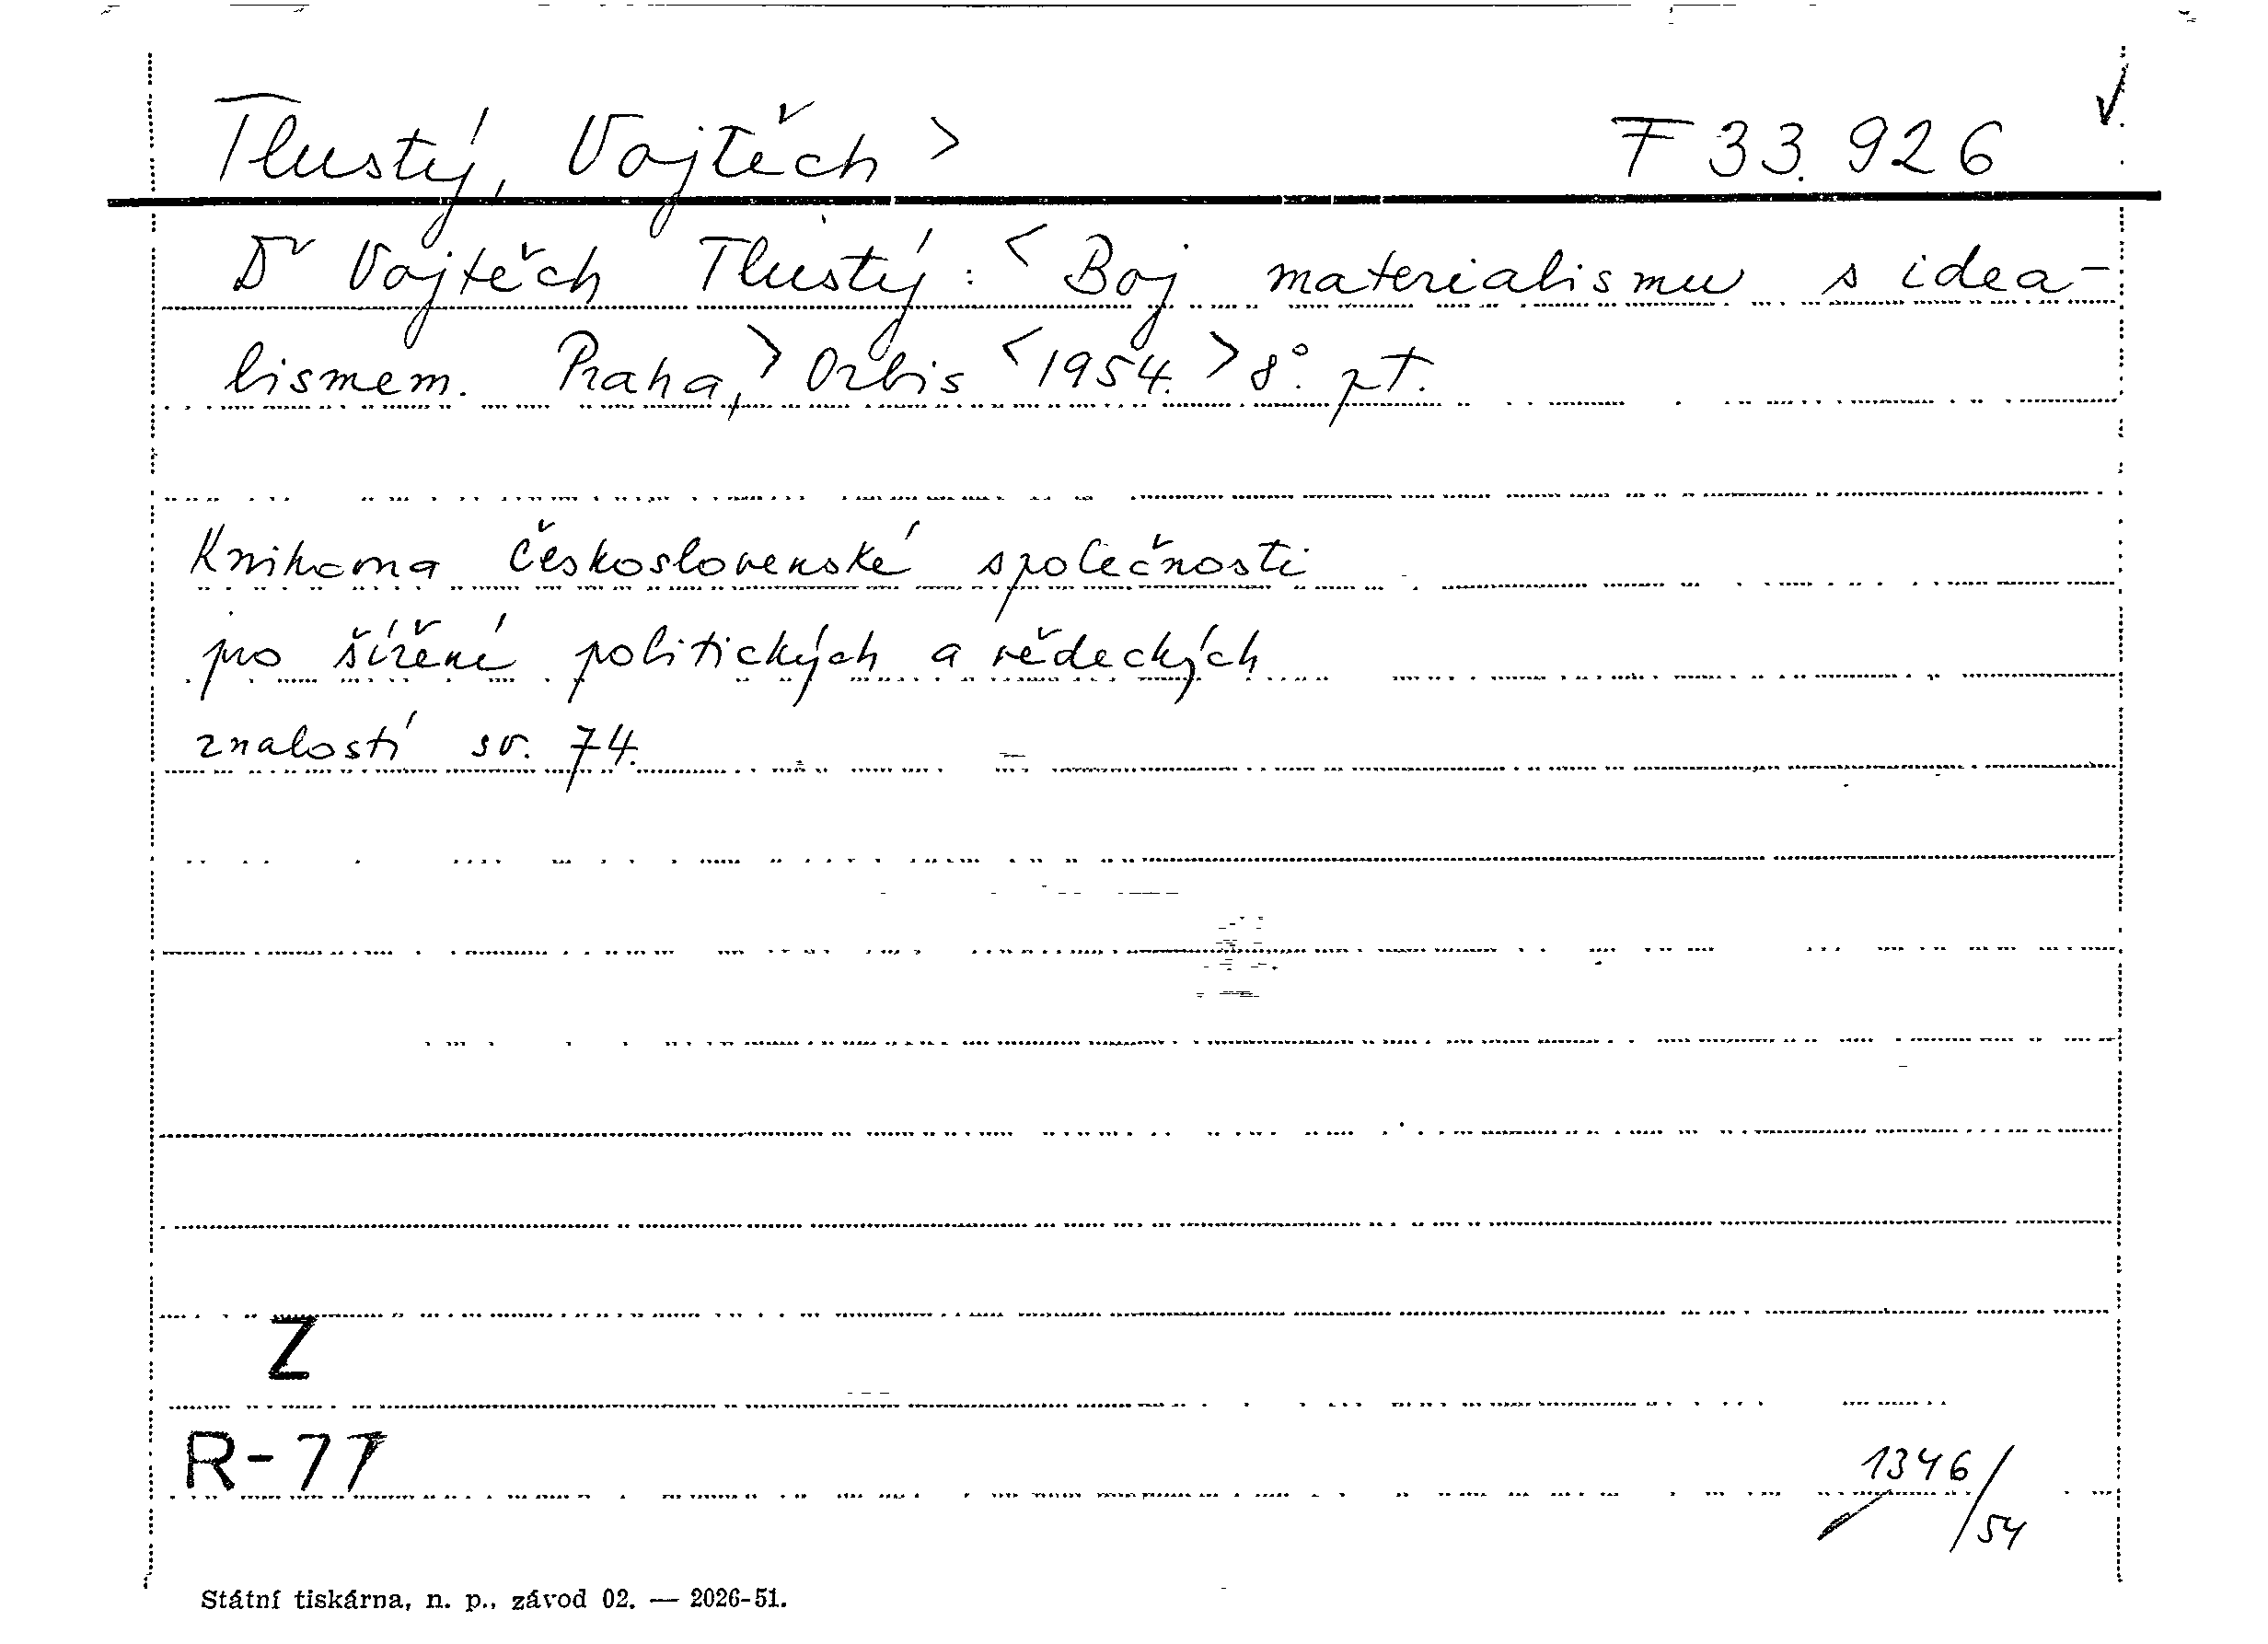 Tlustý, Vojtěch > F 33.926
Dr Vojtěch Tlustý: < Boj materialismu s idea-
lismem. Praha, > Orbis < 1954. > 8°. pt.
Knihovna Československé společnosti
pro šíření politických a vědeckých
znalostí sv. 74.
Z
R-77
1346/54
Státní tiskárna, n. p., závod 02. — 2026-51.